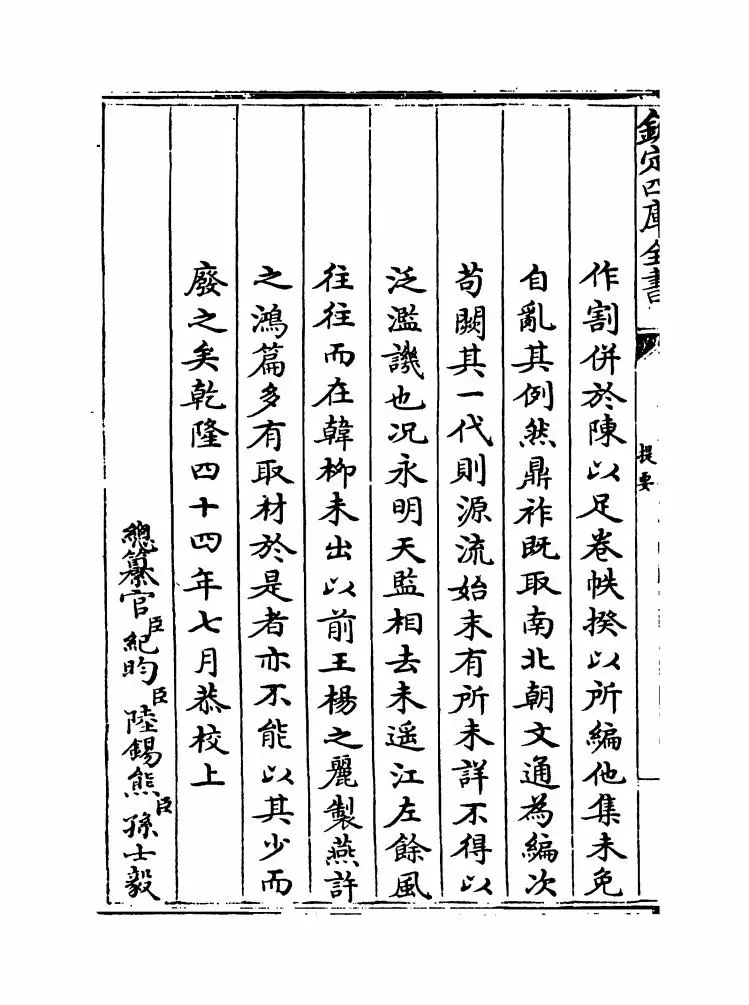 欽定四庫全書
提要
作割併於陳以足卷帙揆以所編他集未免
自亂其例然鼎祚既取南北朝文通為編次
苟闕其一代則源流始末有所未詳不得以
泛濫譏也况永明天監相去未遥江左餘風
往往而在韓栁未出以前王楊之麗製燕許
之鴻篇多有取材於是者亦不能以其少而
廢之矣乾隆四十四年七月恭校上
總纂官臣紀昀臣陸錫熊臣孫士毅